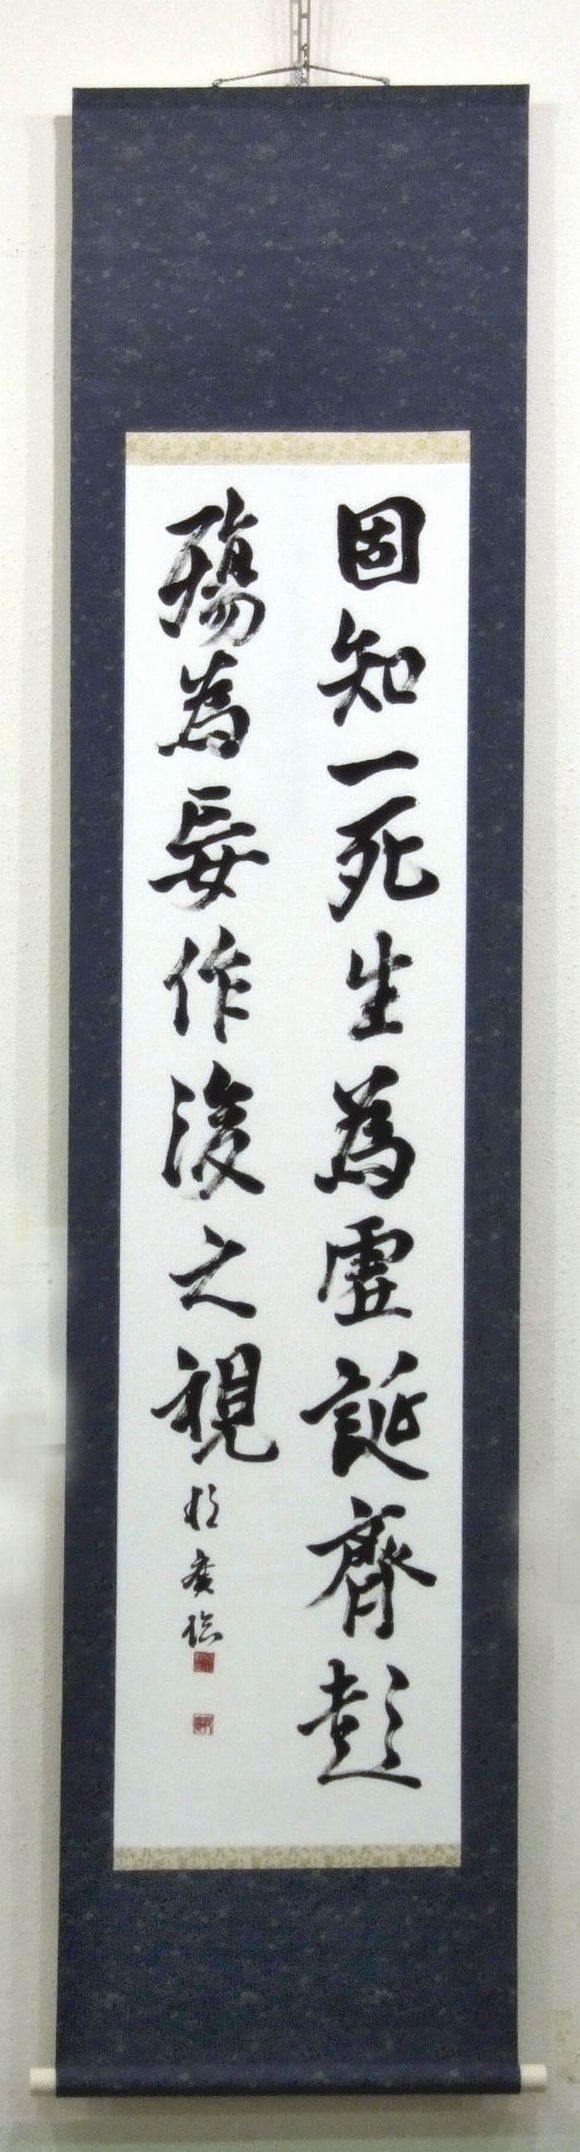 固知一死生為虚誕齊彭
殤為妄作後之視
臨